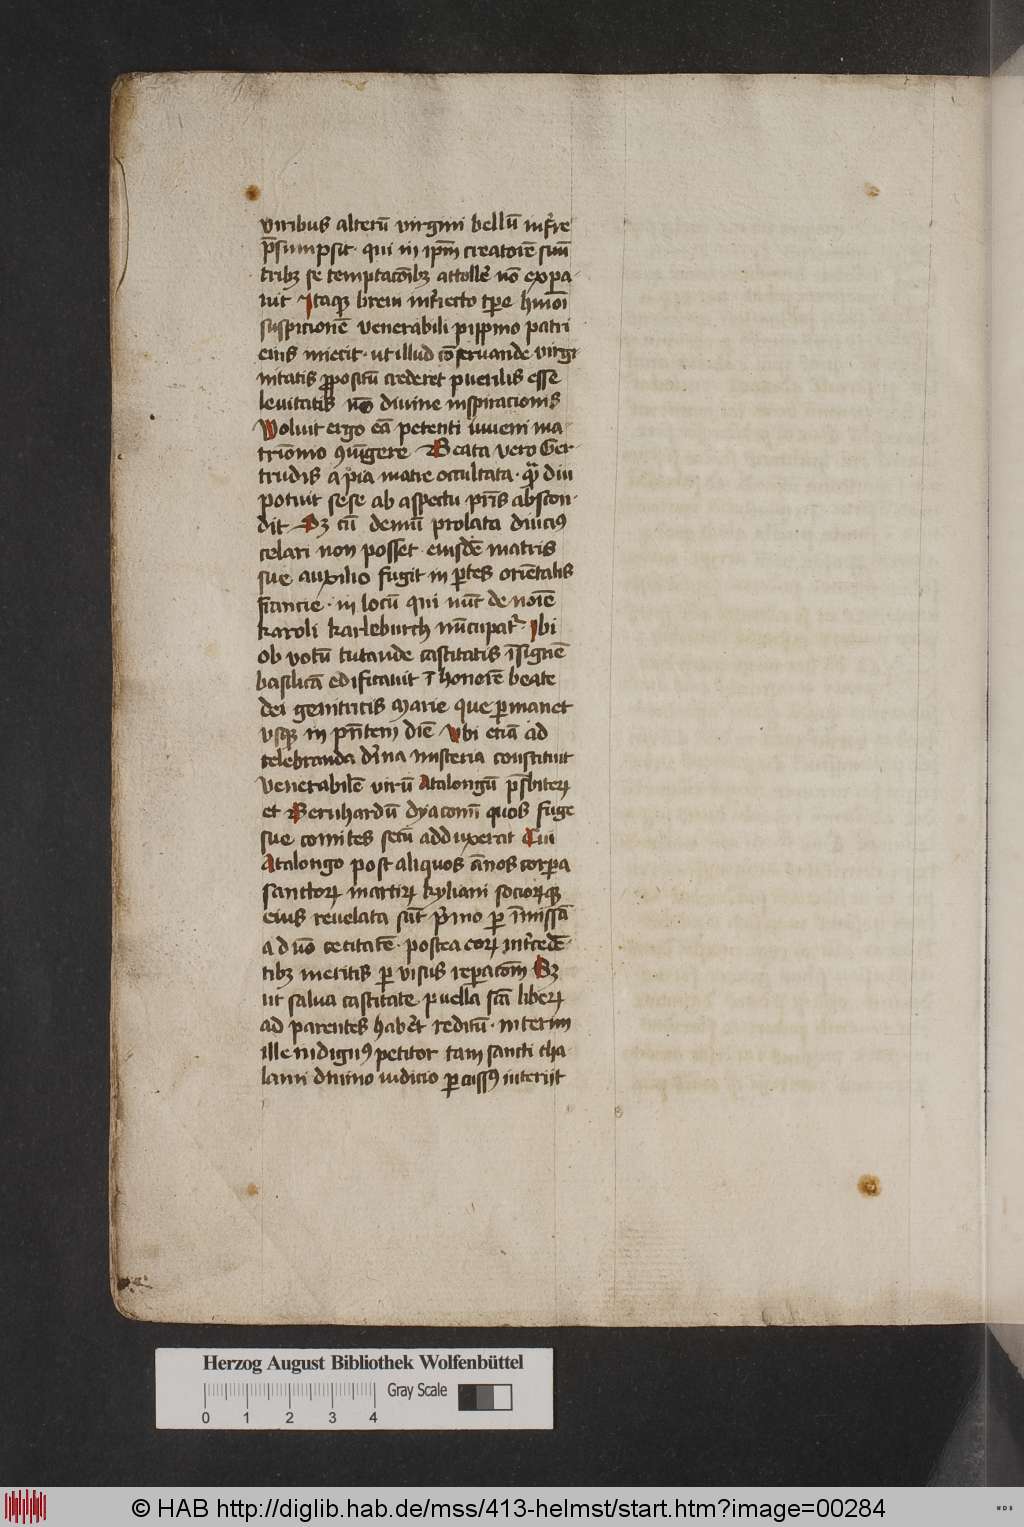 viribus alterū virgini bellū inferre
p̄sumpsit · qui in ip̄m creatorē suū
tribꝫ se temptac̄oībꝫ attollē nō expa-
uit Itaqꝫ breui int̄iecto tp̄e hmōi
suspicionē venerabili pippino patri
eius iniecit · ut illud cōseruande virgi
nitatis ꝓpositū crederet puerilis esse
leuitatis nō diuine inspiracionis
Voluit ergo eā petenti iuueni ma-
trīonio ꝯiūgere Beata vero Ger
trudis a pia matre occultata · qͣ diu
potuit sese ab aspectu pr̄is abscon-
dit Sꝫ cū demū prolata diucius
celari non posset · eiusdē matris
sue auxilio fugit in ꝑtes oriētalis
francie · in locū qui nūc de noīe
karoli karleburch nūcupat᷑ · Ibi
ob votū tutande castitatis īsignē
basilicā edificauit ī honorē beate
dei genitricis Marie que ꝑmanet
vsqꝫ in pn̄tem diē Vbi etiā ad
celebranda diuina misteria constituit
venerabilē virū Atalongū p̄sbiteꝝ
et Bernhardū dyaconū quos fuge
sue comites secū adduxerat Cui
Atalongo post aliquos ānos corꝑa
sanctoꝝ martiꝝ kyliani socioꝝqꝫ
eius reuelata sūt p̄mo ꝑ īmissā
a dn̄o cecitatē · postea eoꝝ int̄cedē-
tibꝫ meritis ꝑ visus reꝑac̄om Sꝫ
ut salua castitate puella sc̄a libeꝝ
ad parentes haberet reditū · interim
ille indignꝰ petitor tam sancti tha-
lami diuino iudicio ꝑcussꝰ interijt
Herzog August Bibliothek Wolfenbüttel
Gray Scale
0 1 2 3 4
© HAB http://diglib.hab.de/mss/413-helmst/start.htm?image=00284